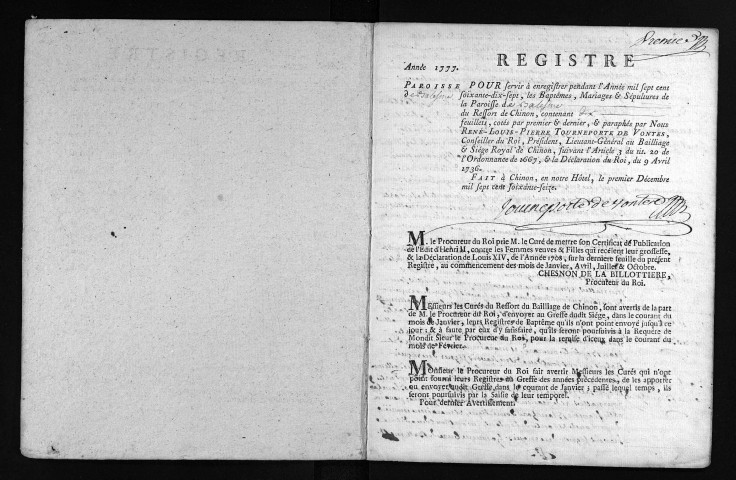 Premier
REGISTRE
Année 1777.
PAROISSE
POUR servir à enregistrer pendant l'Année mil sept cent
soixante-dix-sept, les Baptêmes, Mariages & Sépultures de
la Paroisse de Balesme
du Ressort de Chinon, contenant dix
feuillets, cotés par premier & dernier, & paraphés par Nous
RENÉ-LOUIS-PIERRE TOURNEPORTE DE VONTES,
Conseiller du Roi, Président, Lieutenant-Général au Bailliage
& Siège Royal de Chinon, suivant l'Article 3 du tit. 20 de
l'Ordonnance de 1667, & la Déclaration du Roi, du 9 Avril
1736.
FAIT à Chinon, en notre Hôtel, le premier Décembre
mil sept cent soixante-seize.
Tourneporte de Vontes
M. le Procureur du Roi prie M. le Curé de mettre son Certificat de Publication
de l'Edit d'Henri II, contre les Femmes veuves & Filles qui recèlent leur grossesse,
& la Déclaration de Louis XIV, de l'Année 1708, sur la derniere feuille du présent
Registre, au commencement des mois de Janvier, Avril, Juillet & Octobre.
CHESNON DE LA BILLOTTIERE,
Procureur du Roi.
Messieurs les Curés du Ressort du Bailliage de Chinon, sont avertis de la part
de M. le Procureur du Roi, d'envoyer au Greffe dudit Siège, dans le courant du
mois de Janvier, leurs Registres de Baptême qu'ils n'ont point envoyé jusqu'à ce
jour; & à faute par eux d'y satisfaire, qu'ils seront poursuivis à la Requête de
Mondit Sieur le Procureur du Roi, pour la remise d'iceux dans le courant du
mois de Février.
Monsieur le Procureur du Roi fait avertir Messieurs les Curés qui n'ont
point fourni leurs Registres au Greffe des années précédentes, de les apporter
ou envoyer audit Greffe dans le courant de Janvier; passé lequel temps, ils
seront poursuivis par la Saisie de leur temporel.
Pour dernier Avertissement.